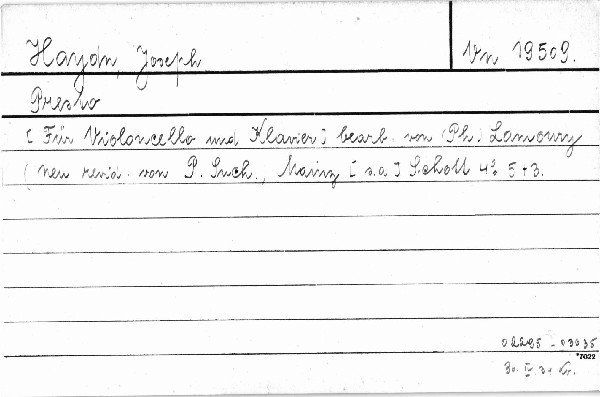 Haydn, Joseph
Vn 19509.
Presto
[ Für Violoncello und Klavier ] bearb. von (Ph.) Lamoury
( neu revid. von P. Such., Mainz [ s.a ] Schott 4° 5+3.
02295 - 03035
*7022
30. IV 31